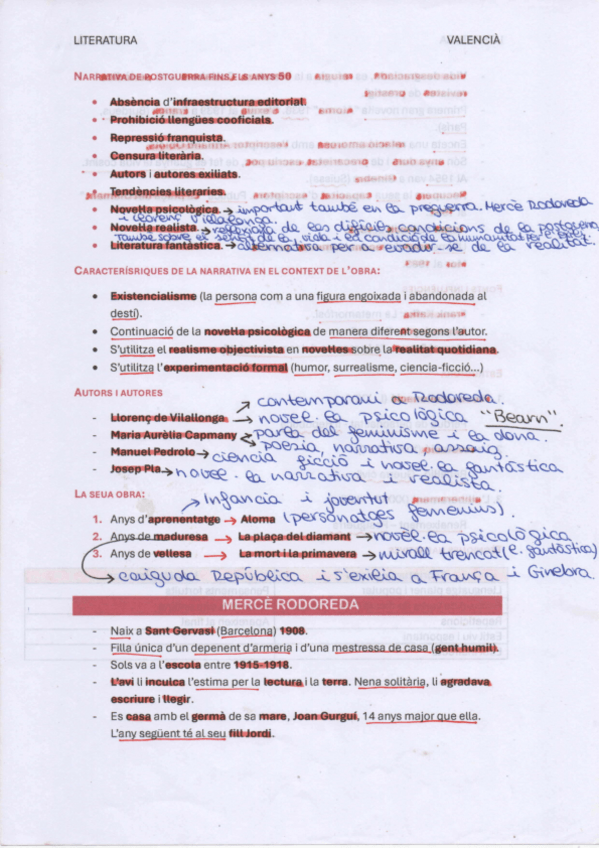 LITERATURA VALENCIÀ
NARRATIVA DE POSTGUERRA FINS ELS ANYS 50
• Absència d'infraestructura editorial.
• Prohibició llengües cooficials.
• Repressió franquista.
• Censura literària.
• Autors i autores exiliats.
• Tendències literaries.
• Novel·la psicològica. → important també en la preguerra. Mercè Rodoreda
i Llorenç Villalonga.
• Novel·la realista. → de les difícils condicions de la postguerra.
També sobre el sentit de la vida i la condició de la humanitat
• Literatura fantàstica. → alternativa per a evadir-se de la realitat.
CARACTERÍSRIQUES DE LA NARRATIVA EN EL CONTEXT DE L'OBRA:
• Existencialisme (la persona com a una figura engoixada i abandonada al
destí).
• Continuació de la novel·la psicològica de manera diferent segons l'autor.
• S'utilitza el realisme objectivista en novel·les sobre la realitat quotidiana.
• S'utilitza l'experimentació formal (humor, surrealisme, ciencia-ficció...)
AUTORS I AUTORES
contemporani a Rodoreda.
- Llorenç de Vilallonga → novel·la psicològica "Bearn".
- Maria Aurèlia Capmany → parla del feminisme i la dona.
poesia, narrativa, assaig.
- Manuel Pedrolo → ciència ficció i novel·la fantàstica
- Josep Pla → novel·la narrativa realista.
LA SEUA OBRA:
Infancia i joventut
1. Anys d'aprenentatge → Aloma (personatges femenins).
2. Anys de maduresa → La plaça del diamant → novel·la psicològica
3. Anys de vellesa → La mort i la primavera → mirall trencat (l. fantàstica)
caiguda República i s'exilia a França i Ginebra.
MERCÈ RODOREDA
- Naix a Sant Gervasi (Barcelona) 1908.
- Filla única d'un depenent d'armeria i d'una mestressa de casa (gent humil).
- Sols va a l'escola entre 1915-1918.
- L'avi li inculca l'estima per la lectura i la terra. Nena solitària, li agradava
escriure i llegir.
- Es casa amb el germà de sa mare, Joan Gurguí, 14 anys major que ella.
L'any següent té al seu fill Jordi.